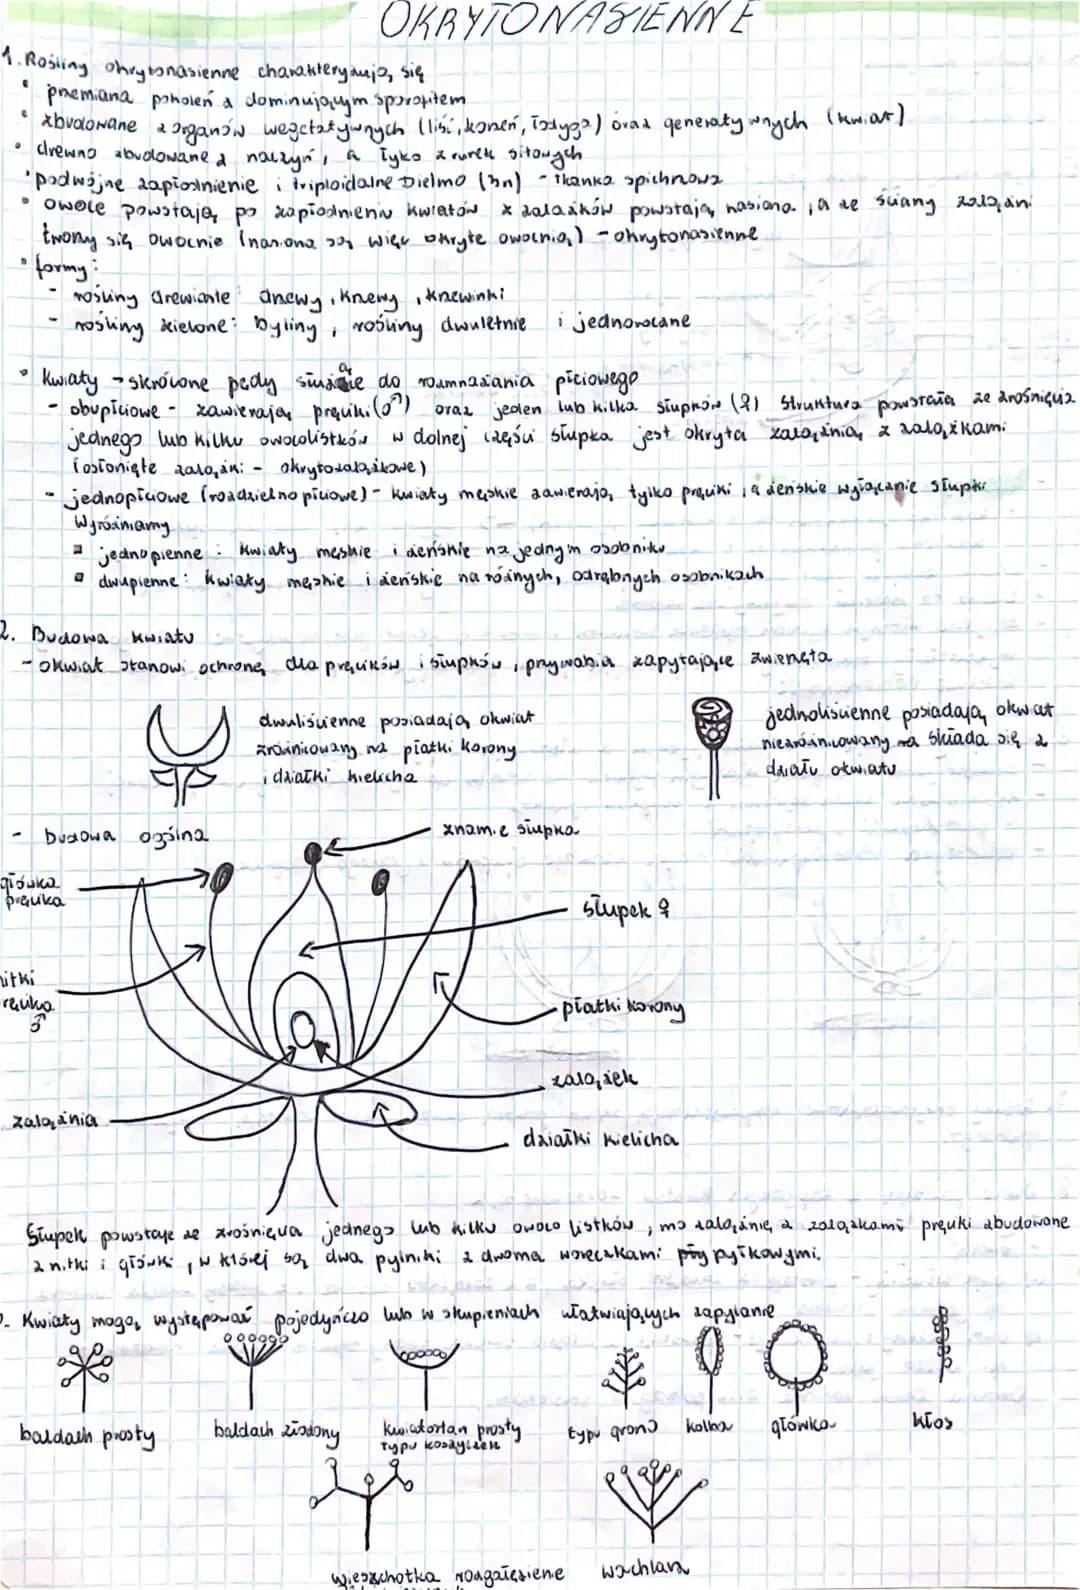 OKRYTONASIENNE
1. Rośliny okrytonasienne charakteryzują się
• przemiana pokoleń z dominującym sporofitem
• zbudowane z organów wegetatywnych (liść, korzeń, łodyga) oraz generatywnych (kwiat)
• drewno zbudowane z naczyń, a łyko z rurek sitowych
• podwójne zapłodnienie i triploidalne bielmo (3n) - tkanka spichrzowa
• owoce powstają po zapłodnieniu kwiatów z zalążków powstają nasiona, a ze ściany zalążni
tworzy się owocnie (nasiona są więc okryte owocnią) - okrytonasienne
• formy:
- rośliny drewiante: drzewy, krzewy, krzewinki
- rośliny zielone: byliny, rośliny dwuletnie i jednoroczne
• Kwiaty → skrócone pędy służące do rozmnażania płciowego
- obupłciowe - zawierają pręciki (♂) oraz jeden lub kilka słupków (♀) struktura powstała ze zrośnięcia
jednego lub kilku owocolistków w dolnej części słupka jest okryta zalążnią z zalążkami
(osłonięte zalążki - okrytozalążkowe)
- jednopłciowe (rozdzielnopłciowe) - kwiaty męskie zawierają tylko pręciki, a żeńskie wyłącznie słupki
Wyróżniamy
▫ jednopienne: kwiaty męskie i żeńskie na jednym osobniku
▫ dwupienne: kwiaty męskie i żeńskie na różnych, odrębnych osobnikach
2. Budowa kwiatu
- okwiat stanowi ochronę dla pręcików i słupków, przywabia zapylające zwierzęta
dwuliścienne posiadają okwiat
zróżnicowany na płatki korony
i działki kielicha
jednoliścienne posiadają okwiat
niezróżnicowany na składa się z
działu okwiatu
- budowa ogólna
znamie słupka
główka
pręcika
słupek ♀
nitki
pręcika
♂
płatki korony
zalążek
zalążnia
działki kielicha
Słupek powstaje ze zrośnięcia jednego lub kilku owocolistków, ma zalążnię z zalążkami pręciki zbudowane
z nitki i główki, w której są dwa pylniki z dwoma woreczkami pyłkowymi.
Kwiaty mogą występować pojedyńczo lub w skupieniach ułatwiających zapylanie
baldach prosty
baldach złożony
kwiatostan prosty
typu koszyczek
typu grono
kolba
główka
kłos
wierzchotka rozgałęziene
wachlarz